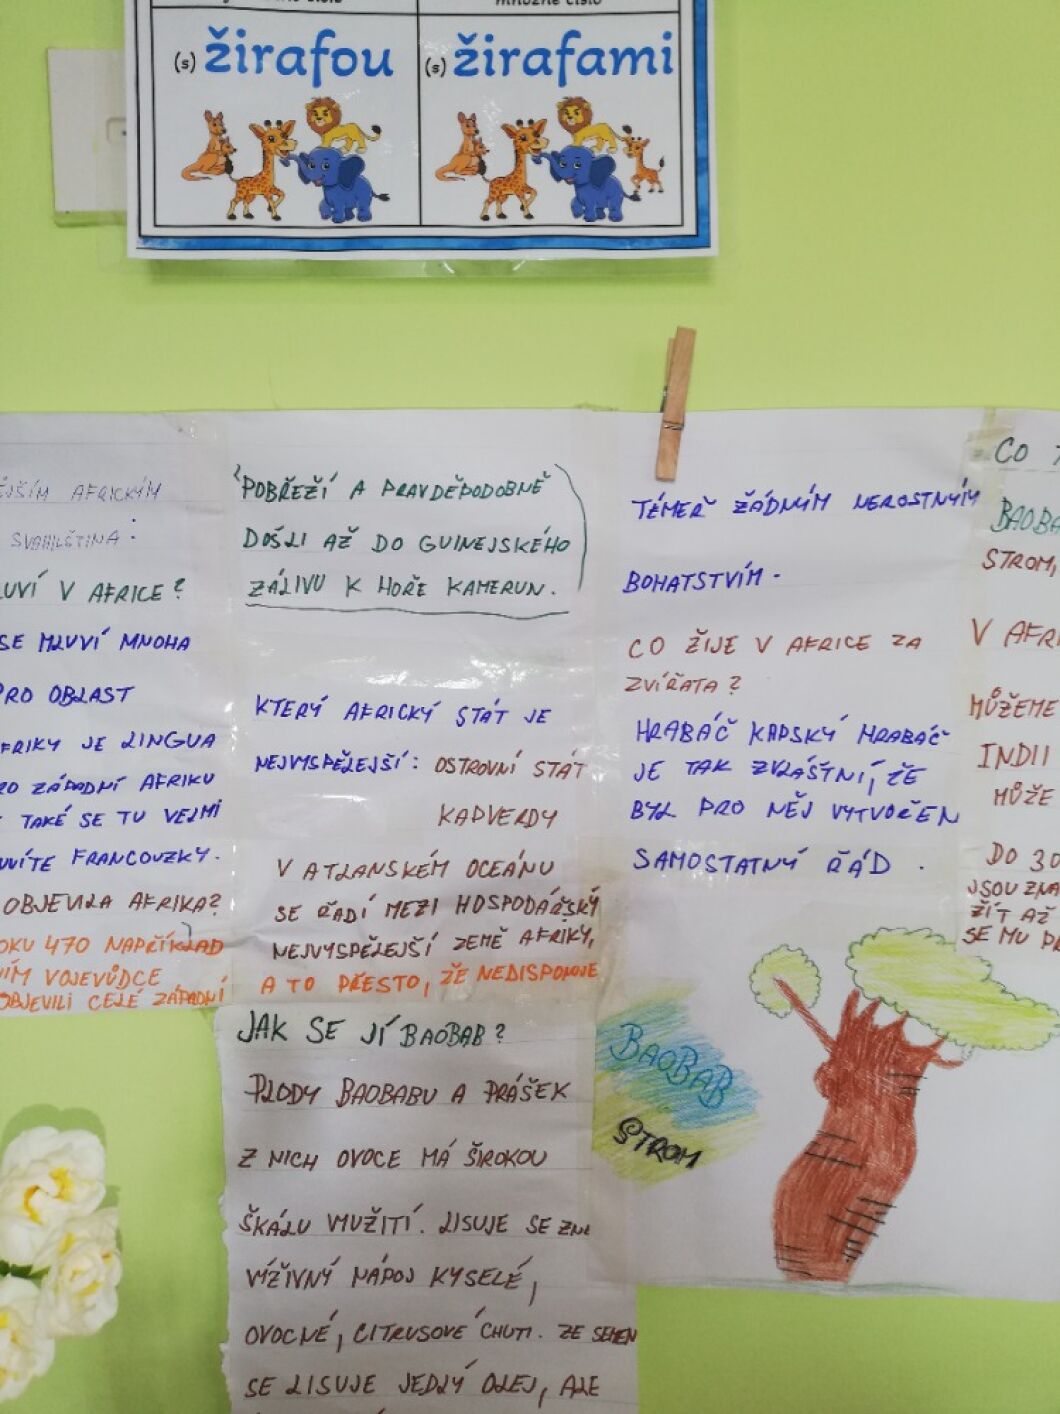 množné číslo
(s) žirafou
(s) žirafami
ĚJŠÍM AFRICKÝM
SVAHILŠTINA:
LUVÍ V AFRICE?
SE MLUVÍ MNOHA
PRO OBLAST
AFRIKY JE LINGUA
RO ZÁPADNÍ AFRIKU
TAKÉ SE TU VELMI
UVÍTE FRANCOUZKY.
OBJEVILA AFRIKA?
OKU 470 NAPŘÍKLAD
NÍM VOJEVŮDCE
OBJEVILI CELÉ ZÁPADNÍ
POBŘEŽÍ A PRAVDĚPODOBNĚ
DOŠLI AŽ DO GUINEJSKÉHO
ZÁLIVU K HOŘE KAMERUN.
KTERÝ AFRICKÝ STÁT JE
NEJVYSPĚLEJŠÍ: OSTROVNÍ STÁT
KAPVERDY
V ATLANSKÉM OCEÁNU
SE ŘADÍ MEZI HOSPODÁŘSKÝ
NEJVYSPĚLEJŠÍ ZEMĚ AFRIKY,
A TO PŘESTO, ŽE NEDISPONUJE
TÉMEŘ ŽÁDNÝM NEROSTNÝM
BOHATSTVÍM.
CO ŽIJE V AFRICE ZA
ZVÍŘATA?
HRABÁČ KAPSKÝ HRABÁČ
JE TAK ZVLÁŠTNÍ, ŽE
BYL PRO NĚJ VYTVOŘEN
SAMOSTATNÝ ŘÁD.
CO
BAOBA
STROM,
V AFRI
MŮŽEME
INDII
MŮŽE
DO 30
JSOU ZNÁ
ŽÍT AŽ
SE MU
JAK SE JÍ BAOBAB?
PLODY BAOBABU A PRÁŠEK
Z NICH OVOCE MÁ ŠIROKOU
ŠKÁLU VYUŽITÍ. LISUJE SE
VÍŽIVNÝ NÁPOJ KYSELÉ,
OVOCNÉ, CITRUSOVÉ CHUTI. ZE SEMEN
SE LISUJE JEDLÝ OLEJ, ALE
BAOBAB
STROM